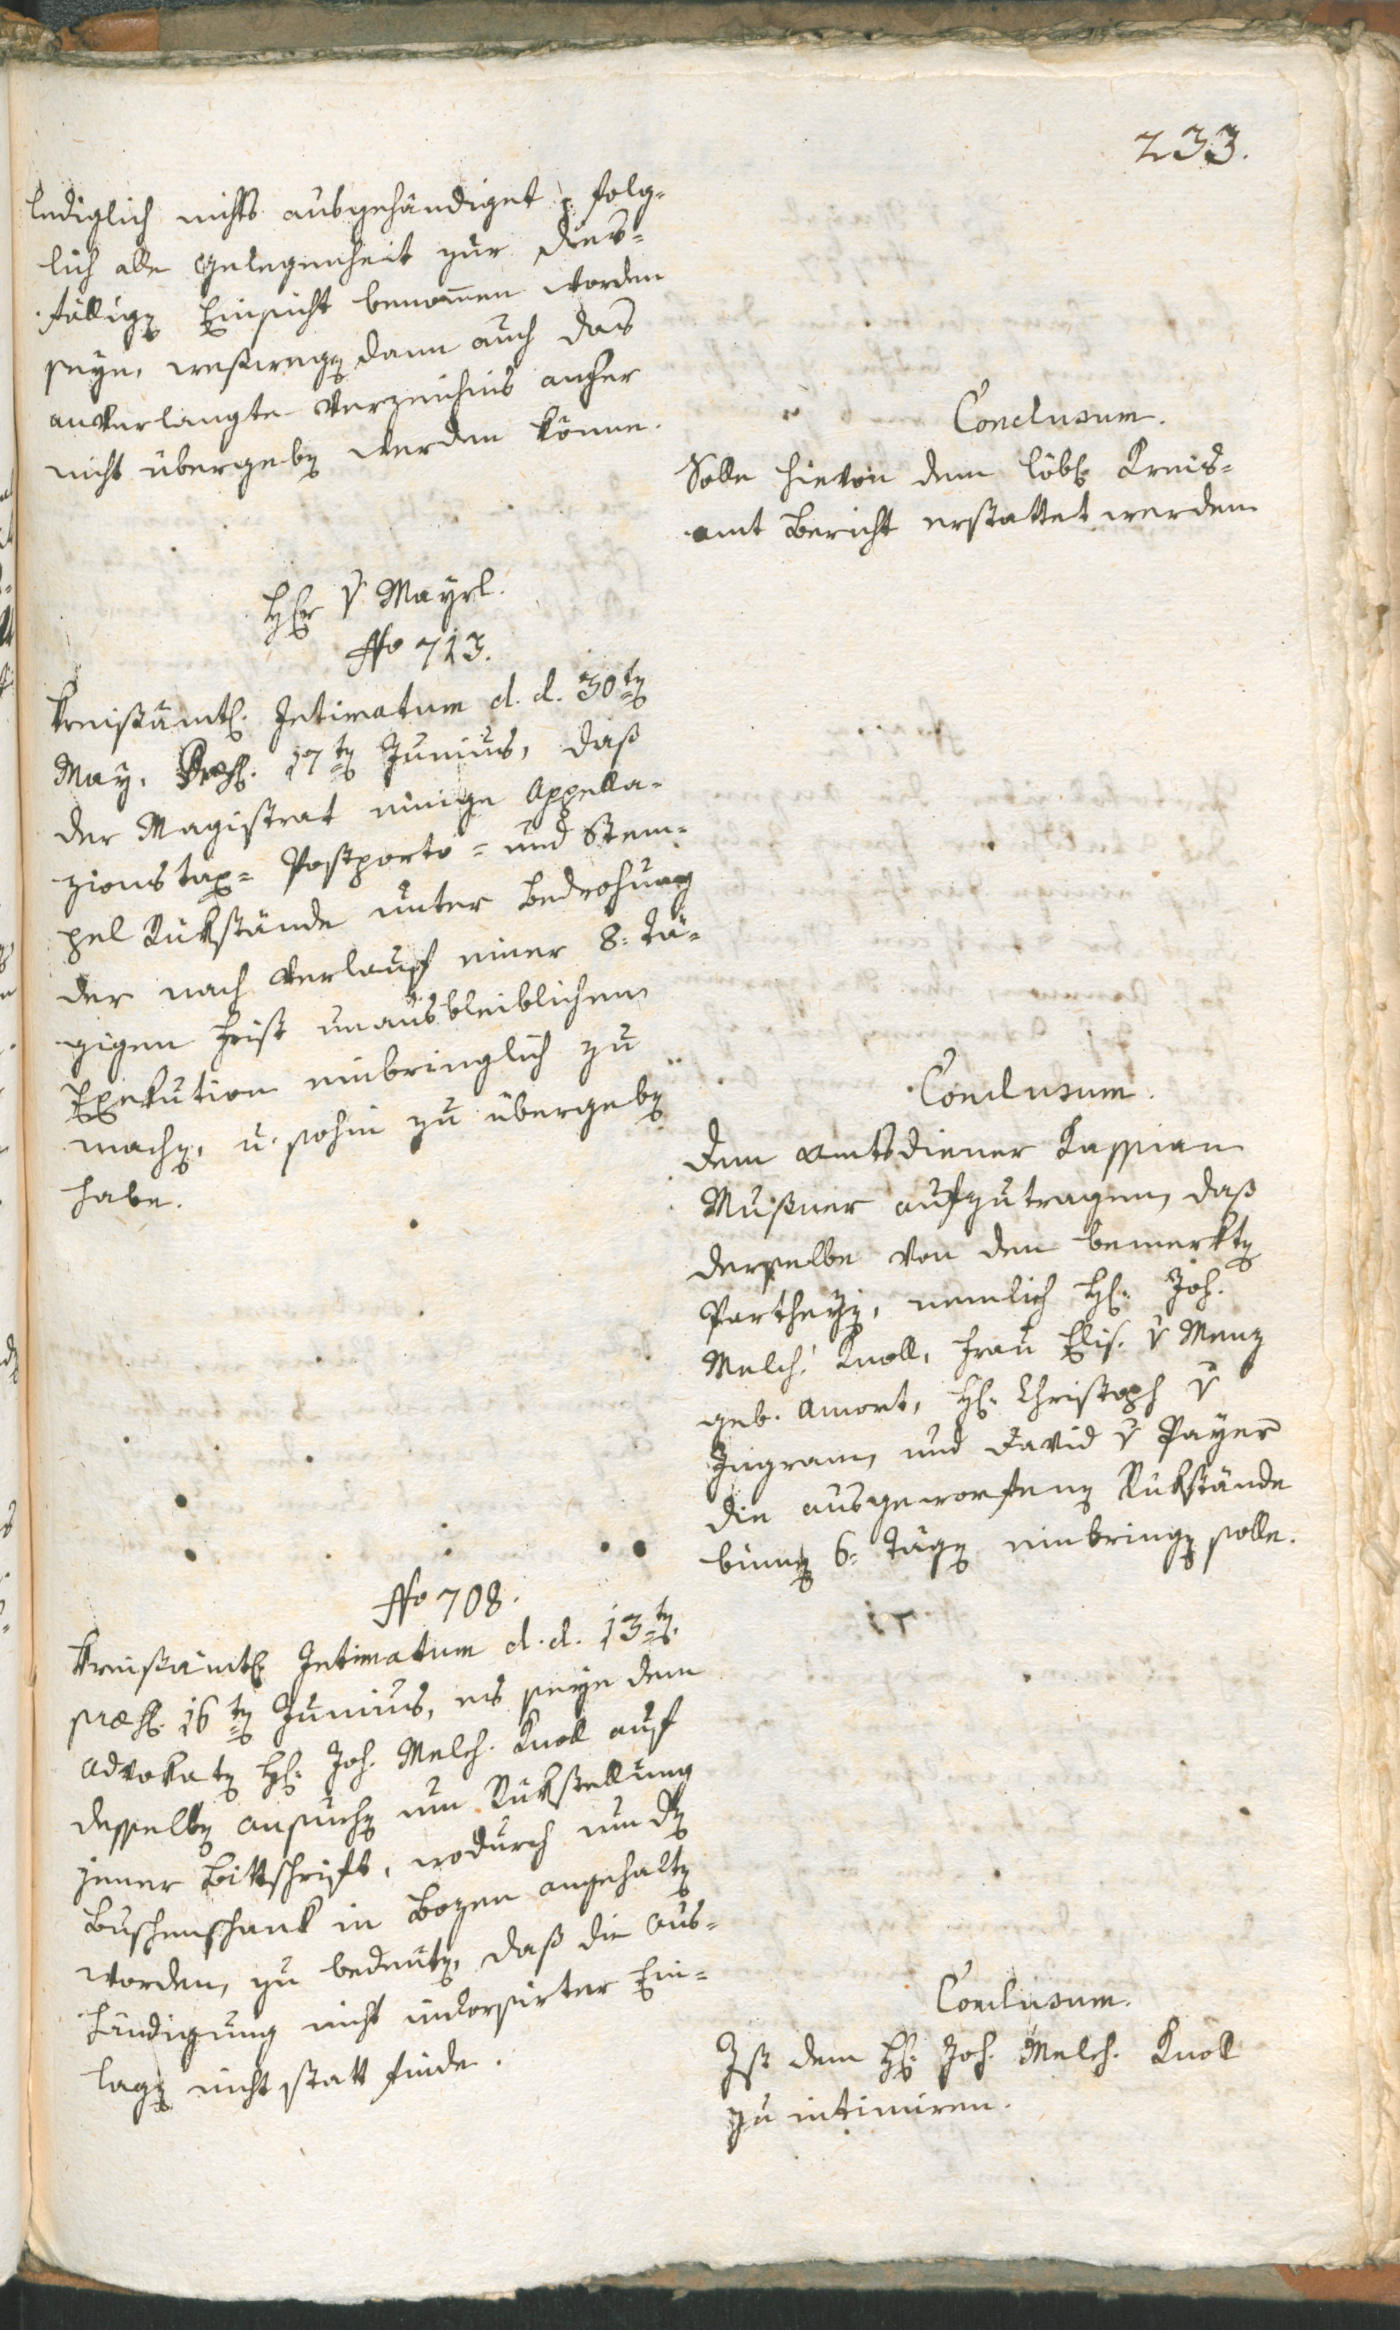 233.
lediglich nichts ausgehändiget, folg=
lich alle Gelegenheit zur dies=
fälligen Einsicht benommen worden
seye, weßwegen dann auch das
anverlangte Verzeichnis anher
nicht übergeben werden könne.
Conclusum.
Solle hievon dem löbl. Kreis=
amt Bericht erstattet werden
Herr v. Mayrl.
No 713.
Kreißämtl. Intimatum d. d. 30ten
May, Præs. 17ten Junius, daß
der Magistrat einige Appella=
zionstax= Postporto= und Stem=
pel Rükstände unter Bedrohung
der nach Verlauf einer 8. tä=
gigen Frist unausbleiblichen
Exekution einbringlich zu
machen, u. sohin zu übergeben
habe.
Conclusum.
Dem Amtsdiener Kassian
Mußner aufzutragen, daß
derselbe von den bemerkten
Partheyen, nemlich H. Joh.
Melch. Knoll, Frau Elis. v. Menz
geb. Amort, H. Christoph v.
Ingram, und David v. Payer
die ausgeworfenen Rükstände
binnen 6. Tägen einbringen solle.
No 708.
Kreißämtl. Intimatum d. d. 13ten.
præs. 16ten Junius, es seye dem
Advokaten H. Joh. Melch. Knoll auf
desselben ansuchen um Rükstellung
jener Bittschrift, wodurch um den
Buschenschank in Bozen angehalten
worden, zu bedeuten, daß die Aus=
händigung nicht indorsirter Ein=
lagen nicht statt finde.
Conclusum.
Ist dem H. Joh. Melch. Knoll
zu intimiren.